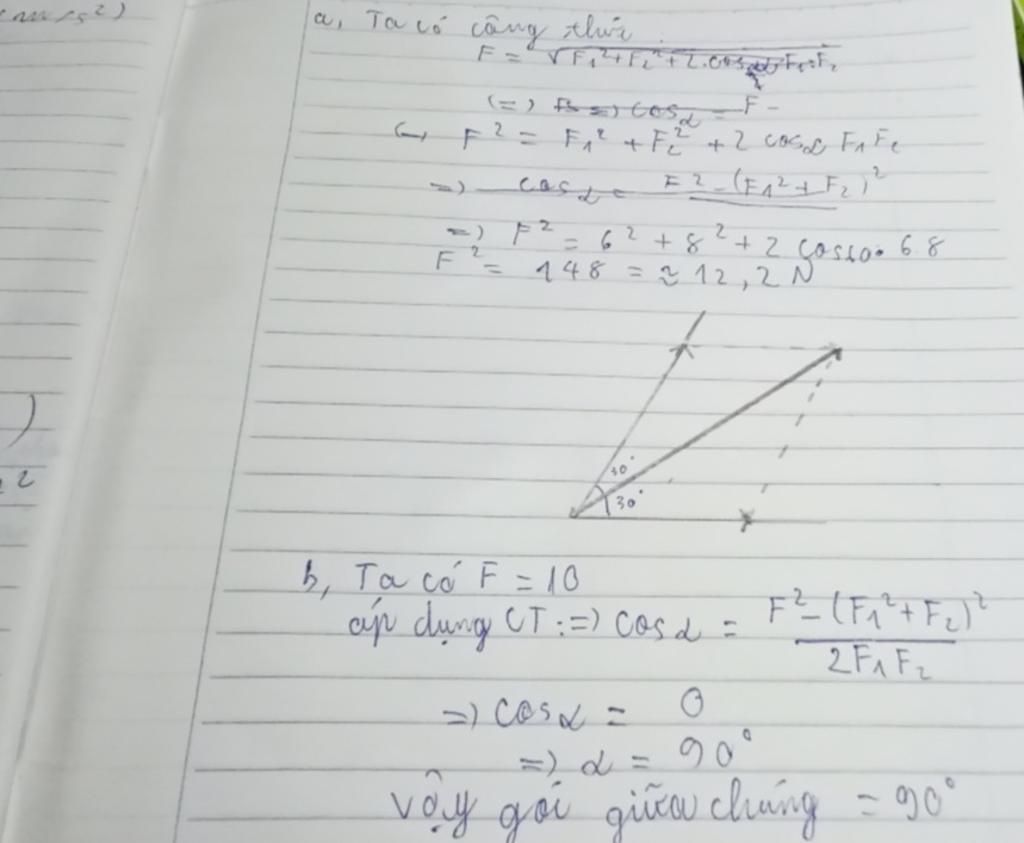 (m/s²)
a, Ta có công thức
F = √F₁²+F₂²+2.cosα.F₁.F₂
(=) cosα = F -
F² = F₁² + F₂² + 2 cosα F₁ F₂
=) cosα = F² - (F₁² + F₂)²
=) F² = 6² + 8² + 2 cos60. 6.8
F² = 148 = ≈ 12,2 N
30°
30°
)
2
b, Ta có F = 10
áp dụng CT :=) cosα = F² - (F₁² + F₂)²
2F₁F₂
=) cosα = 0
=) α = 90°
Vậy gói giữa chúng = 90°